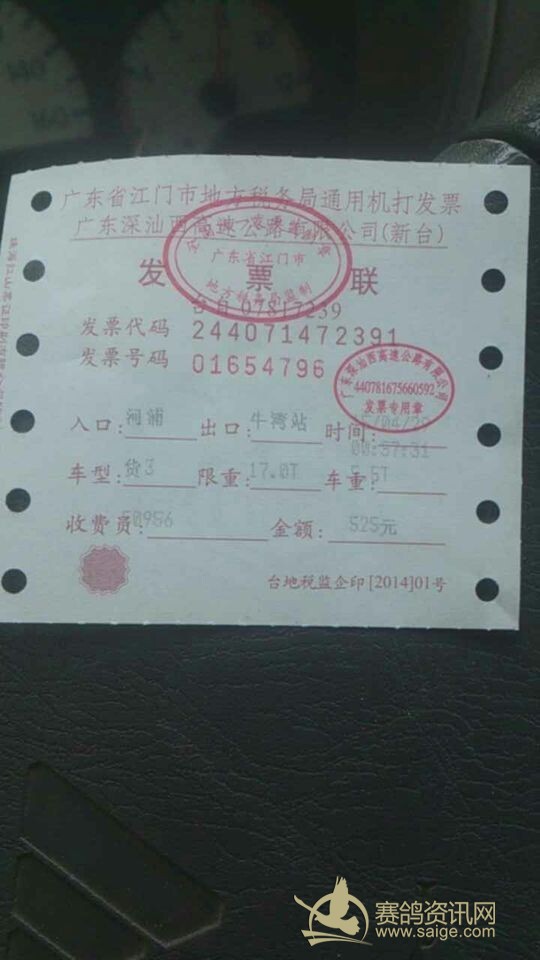 广东省江门市地方税务局通用机打发票
广东深汕西高速公路有限公司(新台)
发 票 联
广东省江门市
地方税务局监制
台自07817239
发票代码 244071472391
发票号码 01654796
广东深汕西高速公路有限公司
440781675660592
发票专用章
入口: 河浦 出口: 牛湾站 时间: 15/04/29
00:37:31
车型: 货3 限重: 17.0T 车重: 5.5T
收费员: 50986 金额: 525元
台地税监企印[2014]01号
赛鸽资讯网
www.saige.com